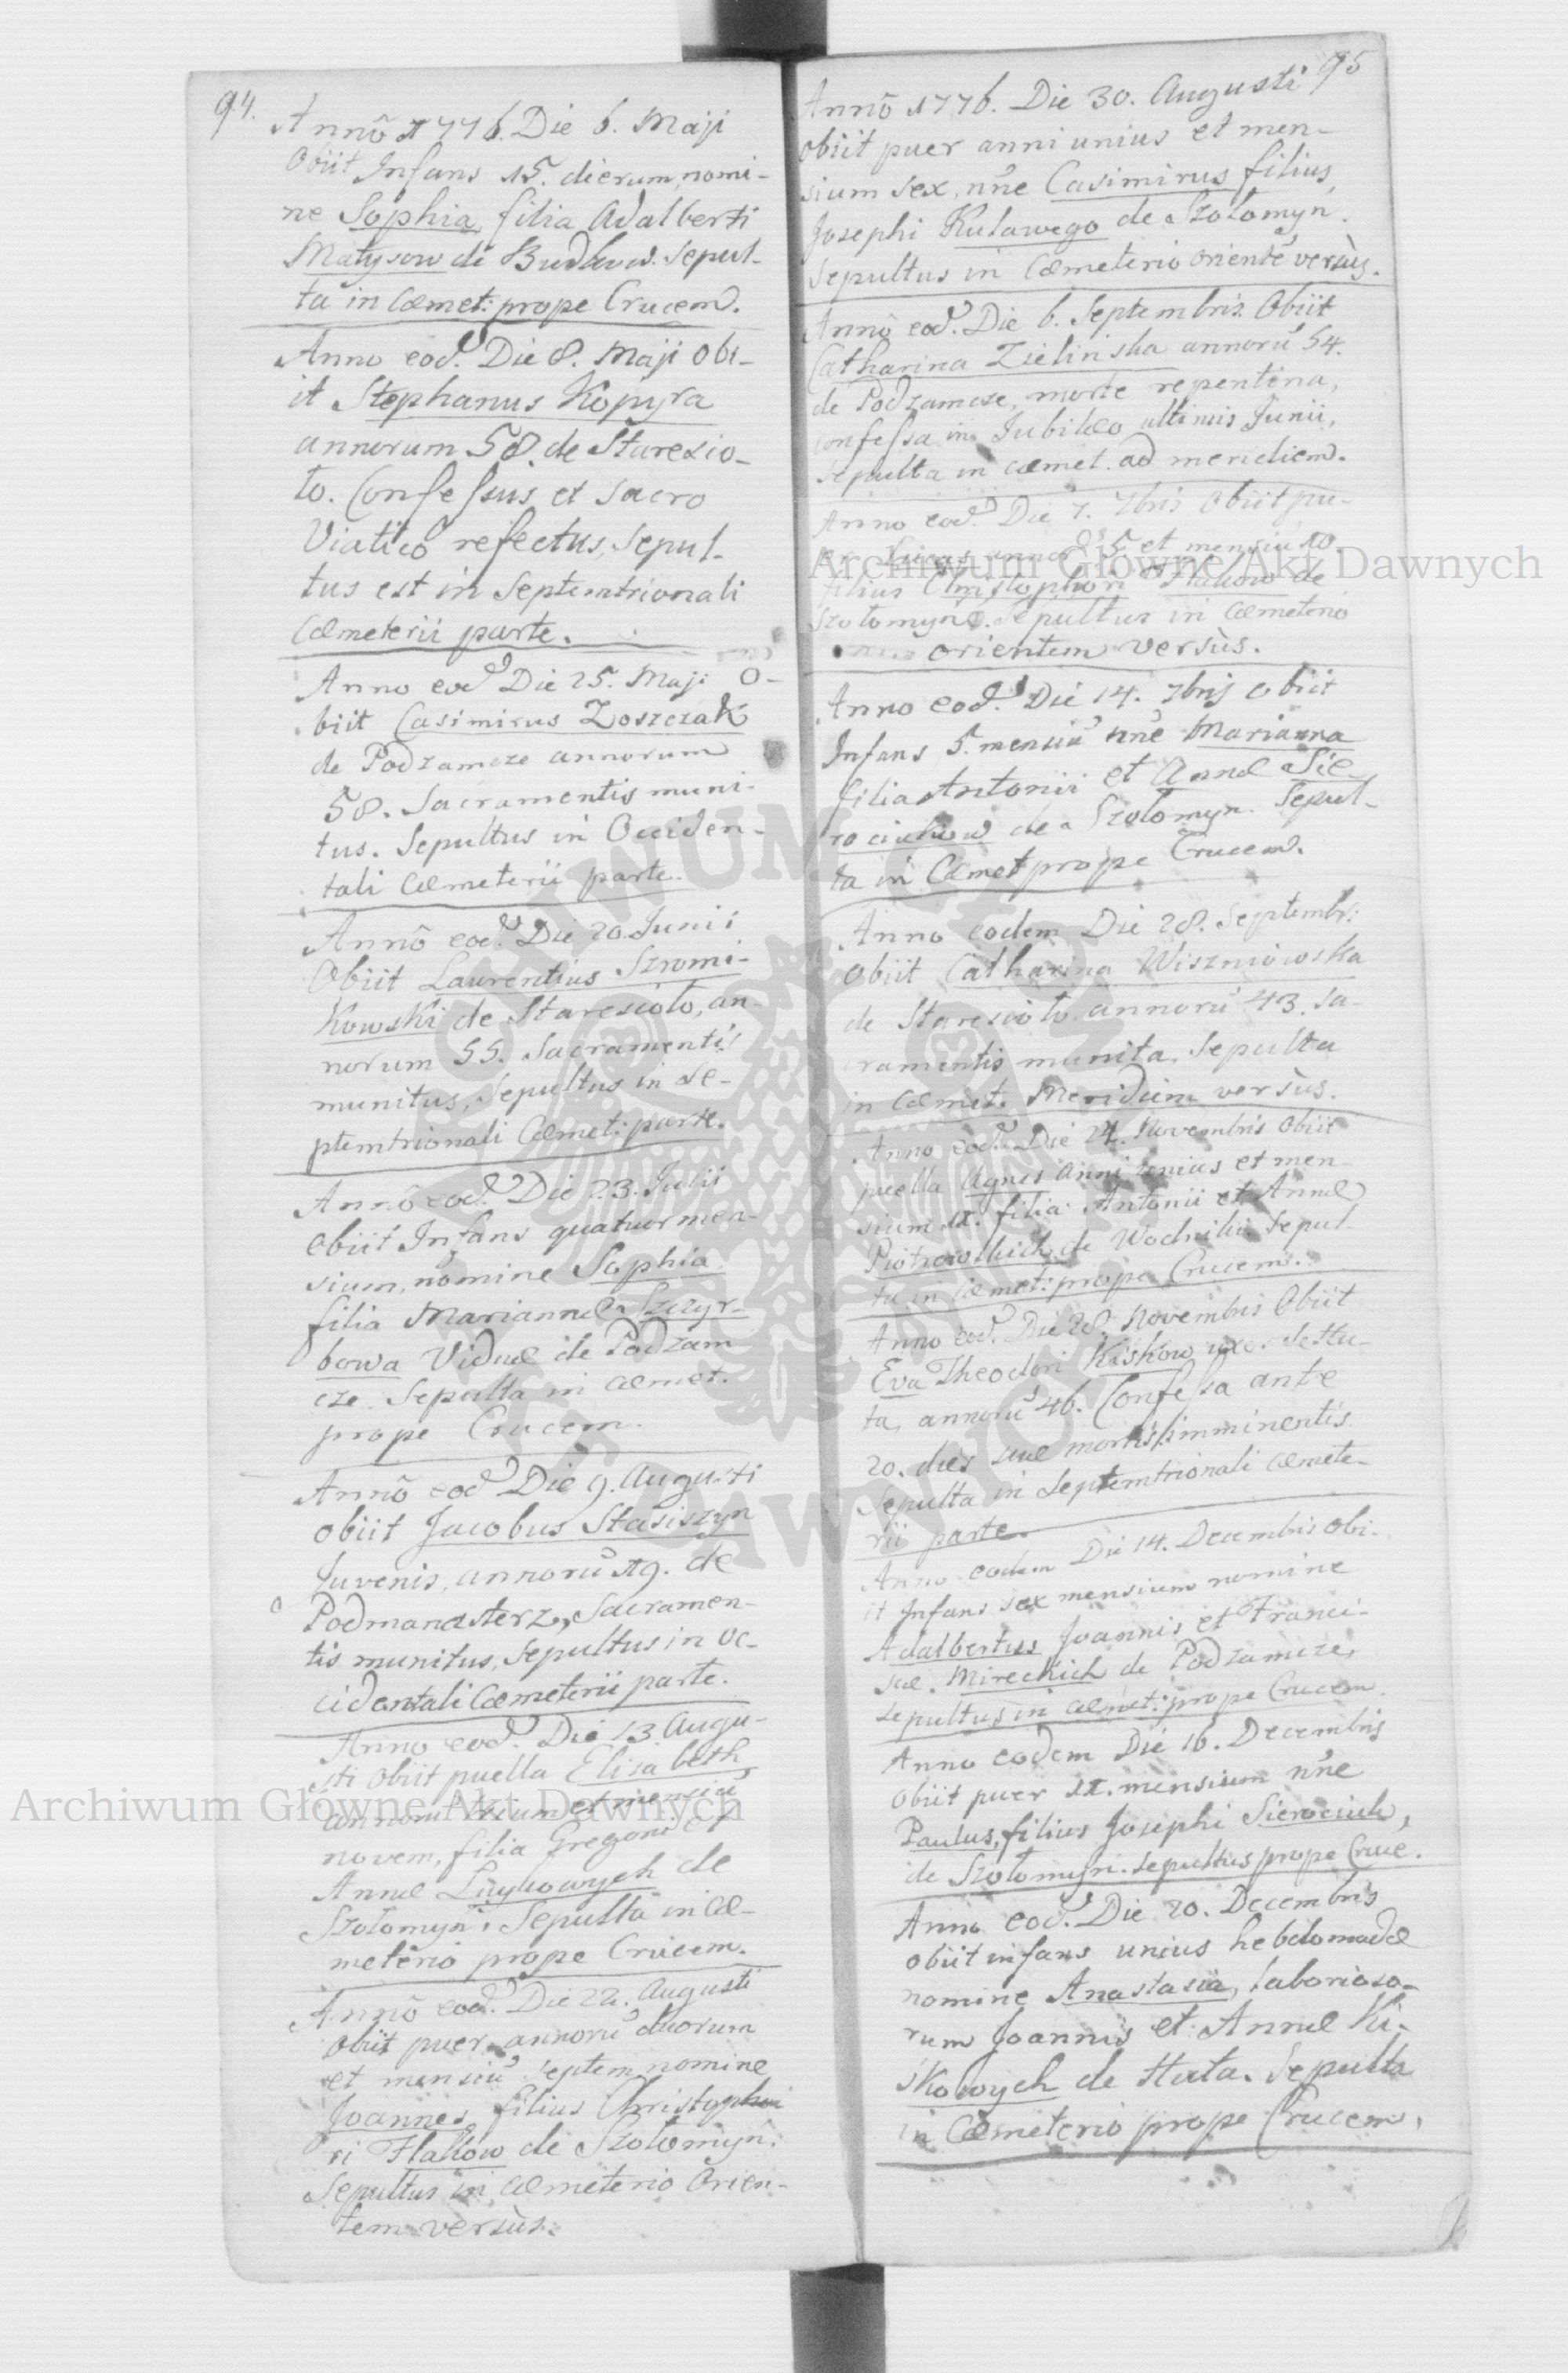 94.
Annô 1776. Die 6. Maji
Obiit Infans 15. dierum, nomi-
ne Sophia, filia Adalberti
Matysow de Budkow. Sepul-
ta in Cœmet: prope Crucem.
Anno eod. Die 8. Maji Obi-
it Stephanus Kopyra
annorum 58. de Staresio-
to. Confessus et Sacro
Viatico refectus, Sepul-
tus est in Septemtrionali
Cœmeterii parte.
Anno eod. Die 25. Maji O-
biit Casimirus Zoszczak
de Podzamcze annorum
58. Sacramentis muni-
tus. Sepultus in Occiden-
tali Cœmeterii parte.
Annô eod. Die 20. Junii
Obiit Laurentius Szromi-
kowski de Staresioło, an-
norum 55. Sacramentis
munitus, Sepultus in Se-
ptemtrionali Cœmet: parte.
Annô eod. Die 23. Julii
Obiit Infans quatuor men-
sium, nomine Sophia
filia Mariannæ Szczyr-
bowa Viduæ de Podzam
cze. Sepulta in Cœmet.
prope Crucem.
Annô eod. Die 9. Augusti
obiit Jacobus Stasiszyn
Juvenis, annorũ 19. de
Podmanasterz, Sacramen-
tis munitus, Sepultus in Oc-
cidentali Cœmeterii parte.
Anno eod. Die 13. Augu-
sti Obiit puella Elisabeth
annorũ trium et mensiũ
novem, filia Gregorii et
Annæ Łuykowych de
Szołomyn. Sepulta in Cœ-
meterio prope Crucem.
Annô eod. Die 22. Augusti
Obiit puer annorũ duorum
et mensiũ septem, nomine
Joannes, filius Christopho
ri Flakow de Szołomyn.
Sepultus in Cœmeterio Orien-
tem versùs.
95
Annô 1776. Die 30. Augusti
obiit puer anni unius et men-
sium sex, nne Casimirus filius
Josephi Kulawego de Szołomyn.
Sepultus in Cœmeterio orientē versùs.
Annô eod. Die 6. Septembris Obiit
Catharina Zielinska annorũ 54.
de Podzamcze, morte repentina,
confessa in Jubilæo ultimis Junii,
Sepulta in Cœmet. ad meridiem.
Anno eod. Die 7. 7bris Obiit pu-
er Lucas annorũ 5 et mensiũ 10.
filius Christophori Flakow de
Szołomyn. Sepultus in Cœmeterio
orientem versùs.
Anno eod. Die 14. 7bris Obiit
Infans 5. mensiũ nne Marianna
filia Antonii et Annæ Sie-
rociukow de Szołomyn. Sepul-
ta in Cœmet prope Crucem.
Anno eodem Die 28. Septembr:
Obiit Catharina Wiszniowska
de Staresioło annorũ 43. Sa-
cramentis munita, Sepulta
in Cœmet. Meridiem versùs.
Anno eod. Die 24. Novembris Obiit
puella Agnes anni unius et men-
sium IX. filia Antonii et Annæ
Piotrowskich de Wodniki Sepul-
ta in Cœmet: prope Crucem.
Anno eod. Die 28. Novembris Obiit
Eva Theodori Kiskow uxor de Hu-
ta, annorũ 46. Confessa ante
20. dies suæ mortis imminentis
Sepulta in Septemtrionali Cœmete-
rii parte.
Anno eodem Die 14. Decembris Obi-
it Infans sex mensium nomine
Adalbertus Joannis et Franci-
scæ Mireckich de Podzamcze,
Sepultus in Cœmet: prope Crucem
Anno eodem Die 16. Decembris
Obiit puer IX. mensium nne
Paulus, filius Josephi Sierociuk,
de Szołomyn. Sepultus prope Cruc.
Anno eod. Die 20. Decembris
obiit infans unius hebdomadæ
nomine Anastasia, laborioso-
rum Joannis et Annæ Ki-
skowych de Huta. Sepulta
in Cœmeterio prope Crucem.
Archiwum Główne Akt Dawnych
Archiwum Główne Akt Dawnych
ARCHIWUM GŁÓWNE AKT DAWNYCH